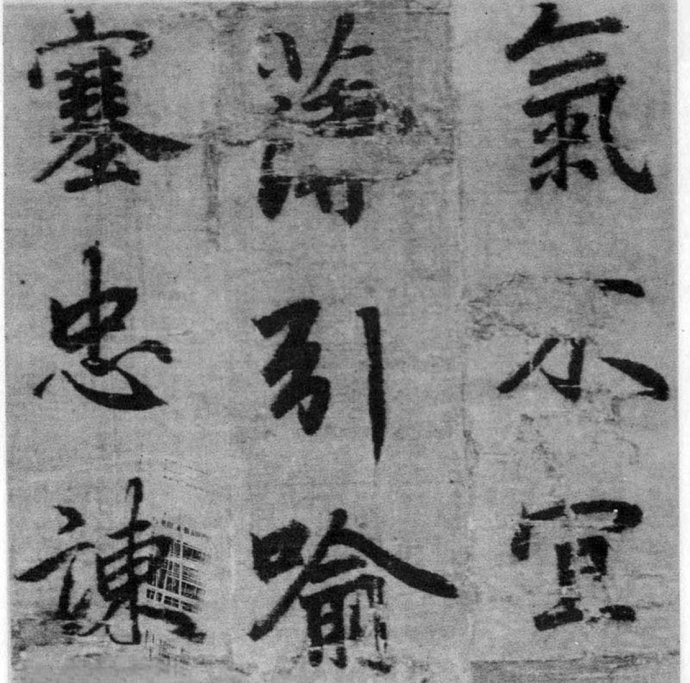 氣不宜
薄引喻
塞忠諫